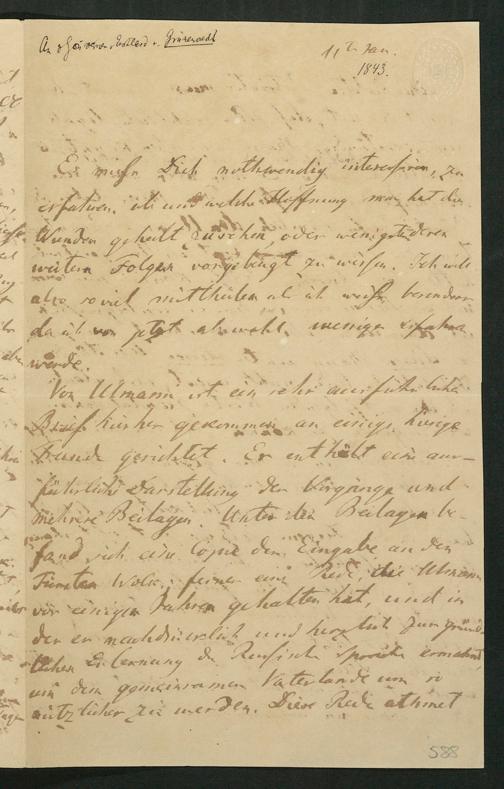 11ten Jan.
1843.
Es muß Dich nothwendig interessiren, zu
erfahren, ob und welche Hoffnung man hat die
Wunden geheilt zu sehen, oder wenigstens deren
weitern Folgen vorgebeugt zu wissen. Ich will
also soviel mittheilen als ich weiß, besonders
da ich von jetzt ab wohl weniger erfahren
werde.
Von Ulmann ist ein sehr ausführlicher
Brief hierher gekommen an einige hiesige
Freunde gerichtet. Er enthält eine aus-
führliche Darstellung der Vorgänge und
mehrere Beilagen. Unter den Beilagen be-
fand sich eine Copie der Eingabe an den
Fürsten Wolk. ferner eine Rede, die Ulmann
vor einigen Jahren gehalten hat, und in
der er nachdrücklich und herzlich zur gründ-
lichen Erlernung der Russisch. Sprache ermahnt,
um dem gemeinsamen Vaterlande um so
nützlicher zu werden. Diese Rede athmet
588